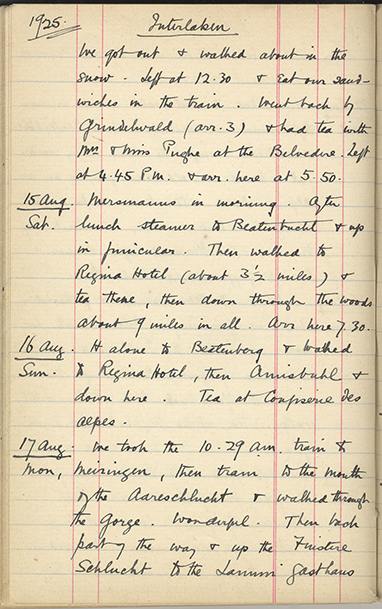 1925. Interlaken
We got out & walked about in the
snow. Left at 12.30 & Eat our sand-
wiches in the train. Went back by
Grindelwald (arr. 3) & had tea with
Mrs & Miss Pughe at the Belvedere. Left
at 4.45 P.M. & arr. here at 5.50.
15 Aug. Mersmanns in morning. After
Sat. lunch steamer to Beatenbucht & up
in funicular. Then walked to
Regina Hotel (about 3½ miles) &
tea there, then down through the woods
about 9 miles in all. Arr here 7.30.
16 Aug. H alone to Beatenberg & walked
Sun. to Regina Hotel, then Amisbuhl &
down here. Tea at Confiserie des
alpes.
17 Aug. We took the 10-29 am. train to
Mon, Meiringen, then tram to the mouth
of the Aareschlucht & walked through
the Gorge. Wonderful. Then back
part of the way & up the Finstere
Schlucht to the Lammi Gasthaus